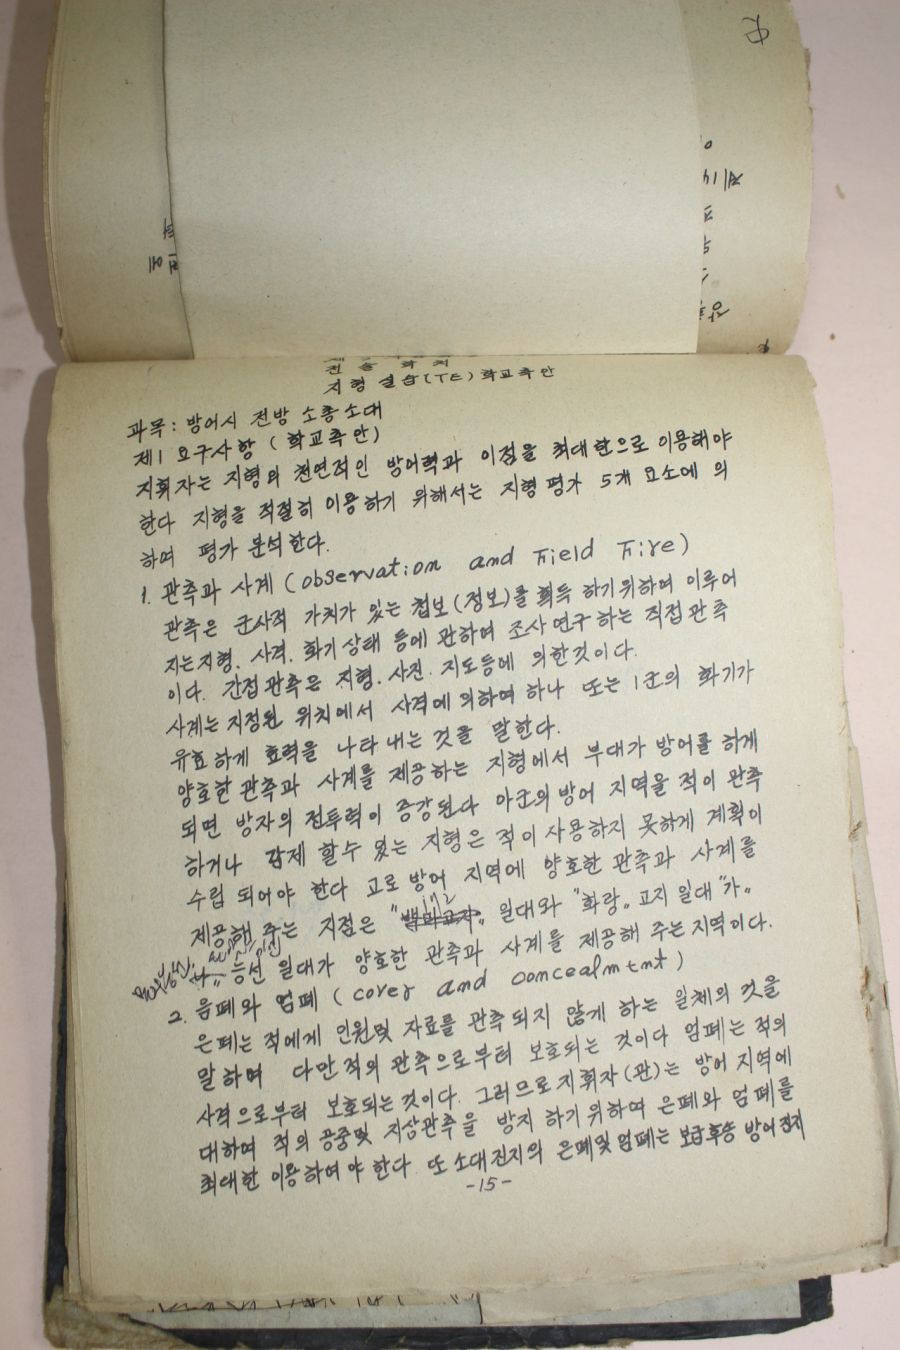 전술학처
지형 실습(TE) 학교측안
과목: 방어시 전방 소총소대
제1 요구사항 (학교측안)
지휘자는 지형의 천연적인 방어력과 이점을 최대한으로 이용해야
한다 지형을 적절히 이용하기 위해서는 지형평가 5개 요소에 의
하여 평가 분석한다.
1. 관측과 사계 (observation and Field Fire)
관측은 군사적 가치가 있는 첩보(정보)를 획득 하기위하여 이루어
지는지형. 사격. 화기상태 등에 관하여 조사연구 하는 직접관측
이다. 간접관측은 지형. 사진. 지도등에 의한것이다.
사계는 지정된 위치에서 사격에 의하여 하나 또는 1군의 화기가
유효하게 효력을 나타내는 것을 말한다.
양호한 관측과 사계를 제공하는 지형에서 부대가 방어를 하게
되면 방자의 전투력이 증강된다 아군의 방어 지역을 적이 관측
하거나 감제 할수 있는 지형은 적이 사용하지 못하게 계획이
수립 되어야 한다 고로 방어 지역에 양호한 관측과 사계를
제공해 주는 지점은 " 일대와 "화랑„ 고지 일대 "가„
"나„ 능선 일대가 양호한 관측과 사계를 제공해 주는지역이다.
2. 은폐와 엄폐 (cover and concealment)
은폐는 적에게 인원및 자료를 관측되지 않게 하는 일체의 것을
말하며 다만 적의 관측으로부터 보호되는 것이다 엄폐는 적의
사격으로부터 보호되는것이다. 그러므로 지휘자(관)는 방어 지역에
대하여 적의 공중및 지상관측을 방지하기위하여 은폐와 엄폐를
최대한 이용하여야 한다. 또 소대진지의 은폐및 엄폐는 보급후송 방어진지
-15-